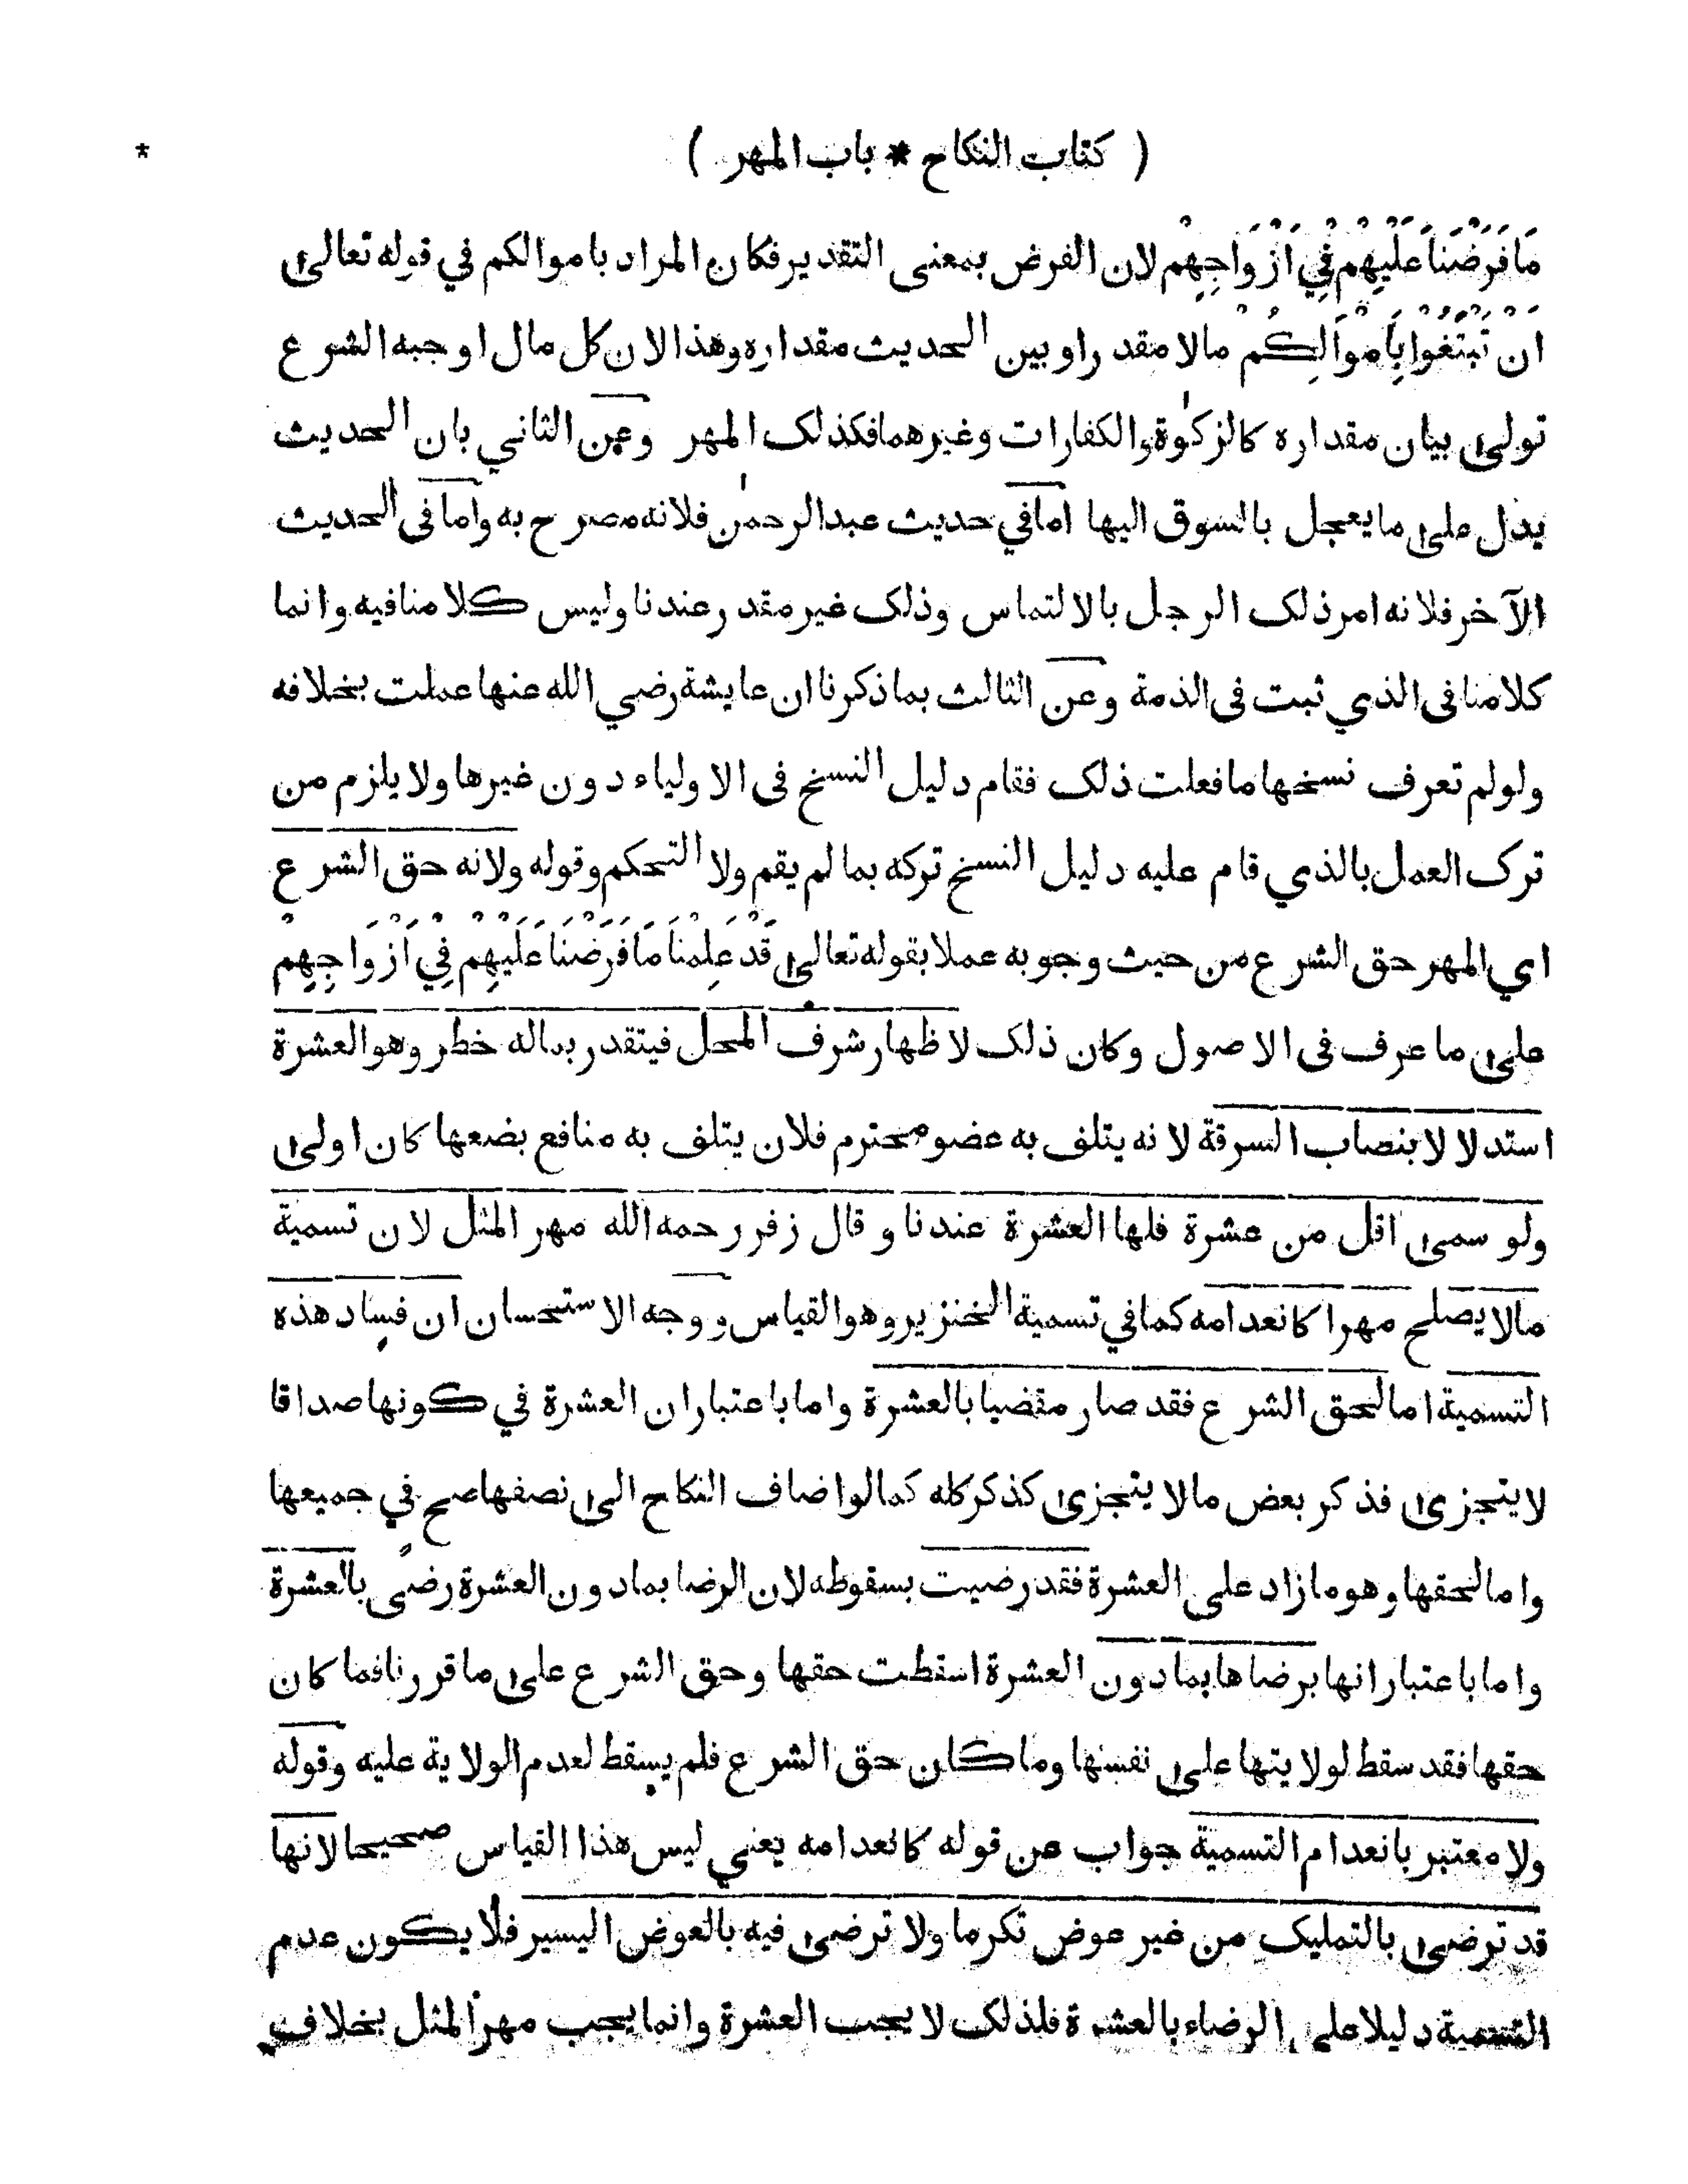 ( كتاب النكاح * باب المهر )
*
مَا فَرَضْنَا عَلَيْهِمْ فِيْ اَزْوَاجِهِمْ لان الفرض بمعنى التقدير فكان المراد باموالكم في قوله تعالى
اَنْ تَبْتَغُوْا بِاَمْوَالِكُمْ مالا مقدرا وبين الحديث مقداره وهذا لان كل مال اوجبه الشرع
تولى بيان مقداره كالزكوة والكفارات وغيرهما فكذلك المهر وعن الثاني بان الحديث
يدل على ما يعجل بالسوق اليها اما في حديث عبد الرحمن فلانه مصرح به واما في الحديث
الآخر فلانه امر ذلك الرجل بالالتماس وذلك غير مقدر عندنا وليس كلامنا فيه وانما
كلامنا في الذي ثبت في الذمة وعن الثالث بما ذكرنا ان عايشة رضي الله عنها عملت بخلافه
ولو لم تعرف نسخها ما فعلت ذلك فقام دليل النسخ في الاولياء دون غيرها ولا يلزم من
ترك العمل بالذي قام عليه دليل النسخ تركه بما لم يقم ولا التحكم وقوله ولانه حق الشرع
اي المهر حق الشرع من حيث وجوبه عملا بقوله تعالى قَدْ عَلِمْنَا مَا فَرَضْنَا عَلَيْهِمْ فِيْ اَزْوَاجِهِمْ
على ما عرف في الاصول وكان ذلك لاظهار شرف المحل فيتقدر بماله خطر وهو العشرة
استدلالا بنصاب السرقة لانه يتلف به عضو محترم فلان يتلف به منافع بضعها كان اولى
ولو سمى اقل من عشرة فلها العشرة عندنا و قال زفر رحمه الله مهر المثل لان تسمية
مالا يصلح مهرا كانعدامه كما في تسمية الخنزير وهو القياس ووجه الاستحسان ان فساد هذه
التسمية اما لحق الشرع فقد صار مقضيا بالعشرة واما باعتبار ان العشرة في كونها صداقا
لا يتجزى فذكر بعض مالا يتجزى كذكر كله كما لو اضاف النكاح الى نصفها صح في جميعها
واما لحقها وهو ما زاد على العشرة فقد رضيت بسقوطه لان الرضا بما دون العشرة رضى بالعشرة
واما باعتبار انها برضاها بما دون العشرة اسقطت حقها وحق الشرع على ما قررنا فما كان
حقها فقد سقط لولايتها على نفسها وما كان حق الشرع فلم يسقط لعدم الولاية عليه وقوله
ولا معتبر بانعدام التسمية جواب عن قوله كانعدامه يعني ليس هذا القياس صحيحا لانها
قد ترضى بالتمليك من غير عوض تكرما ولا ترضى فيه بالعوض اليسير فلا يكون عدم
التسمية دليلا على الرضاء بالعشرة فلذلك لا يجب العشرة وانما يجب مهر المثل بخلاف